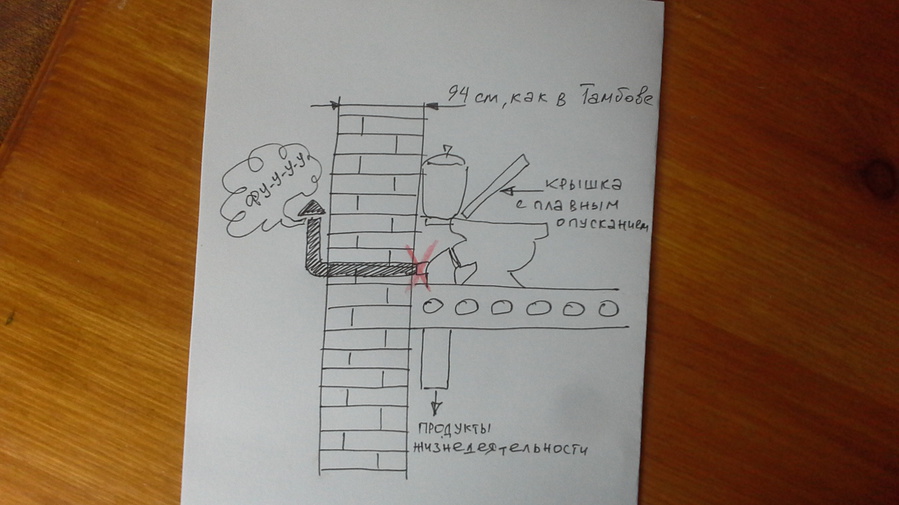 94 см, как в Тамбове
фу-у-у-у
крышка
с плавным
опусканием
продукты
жизнедеятельности